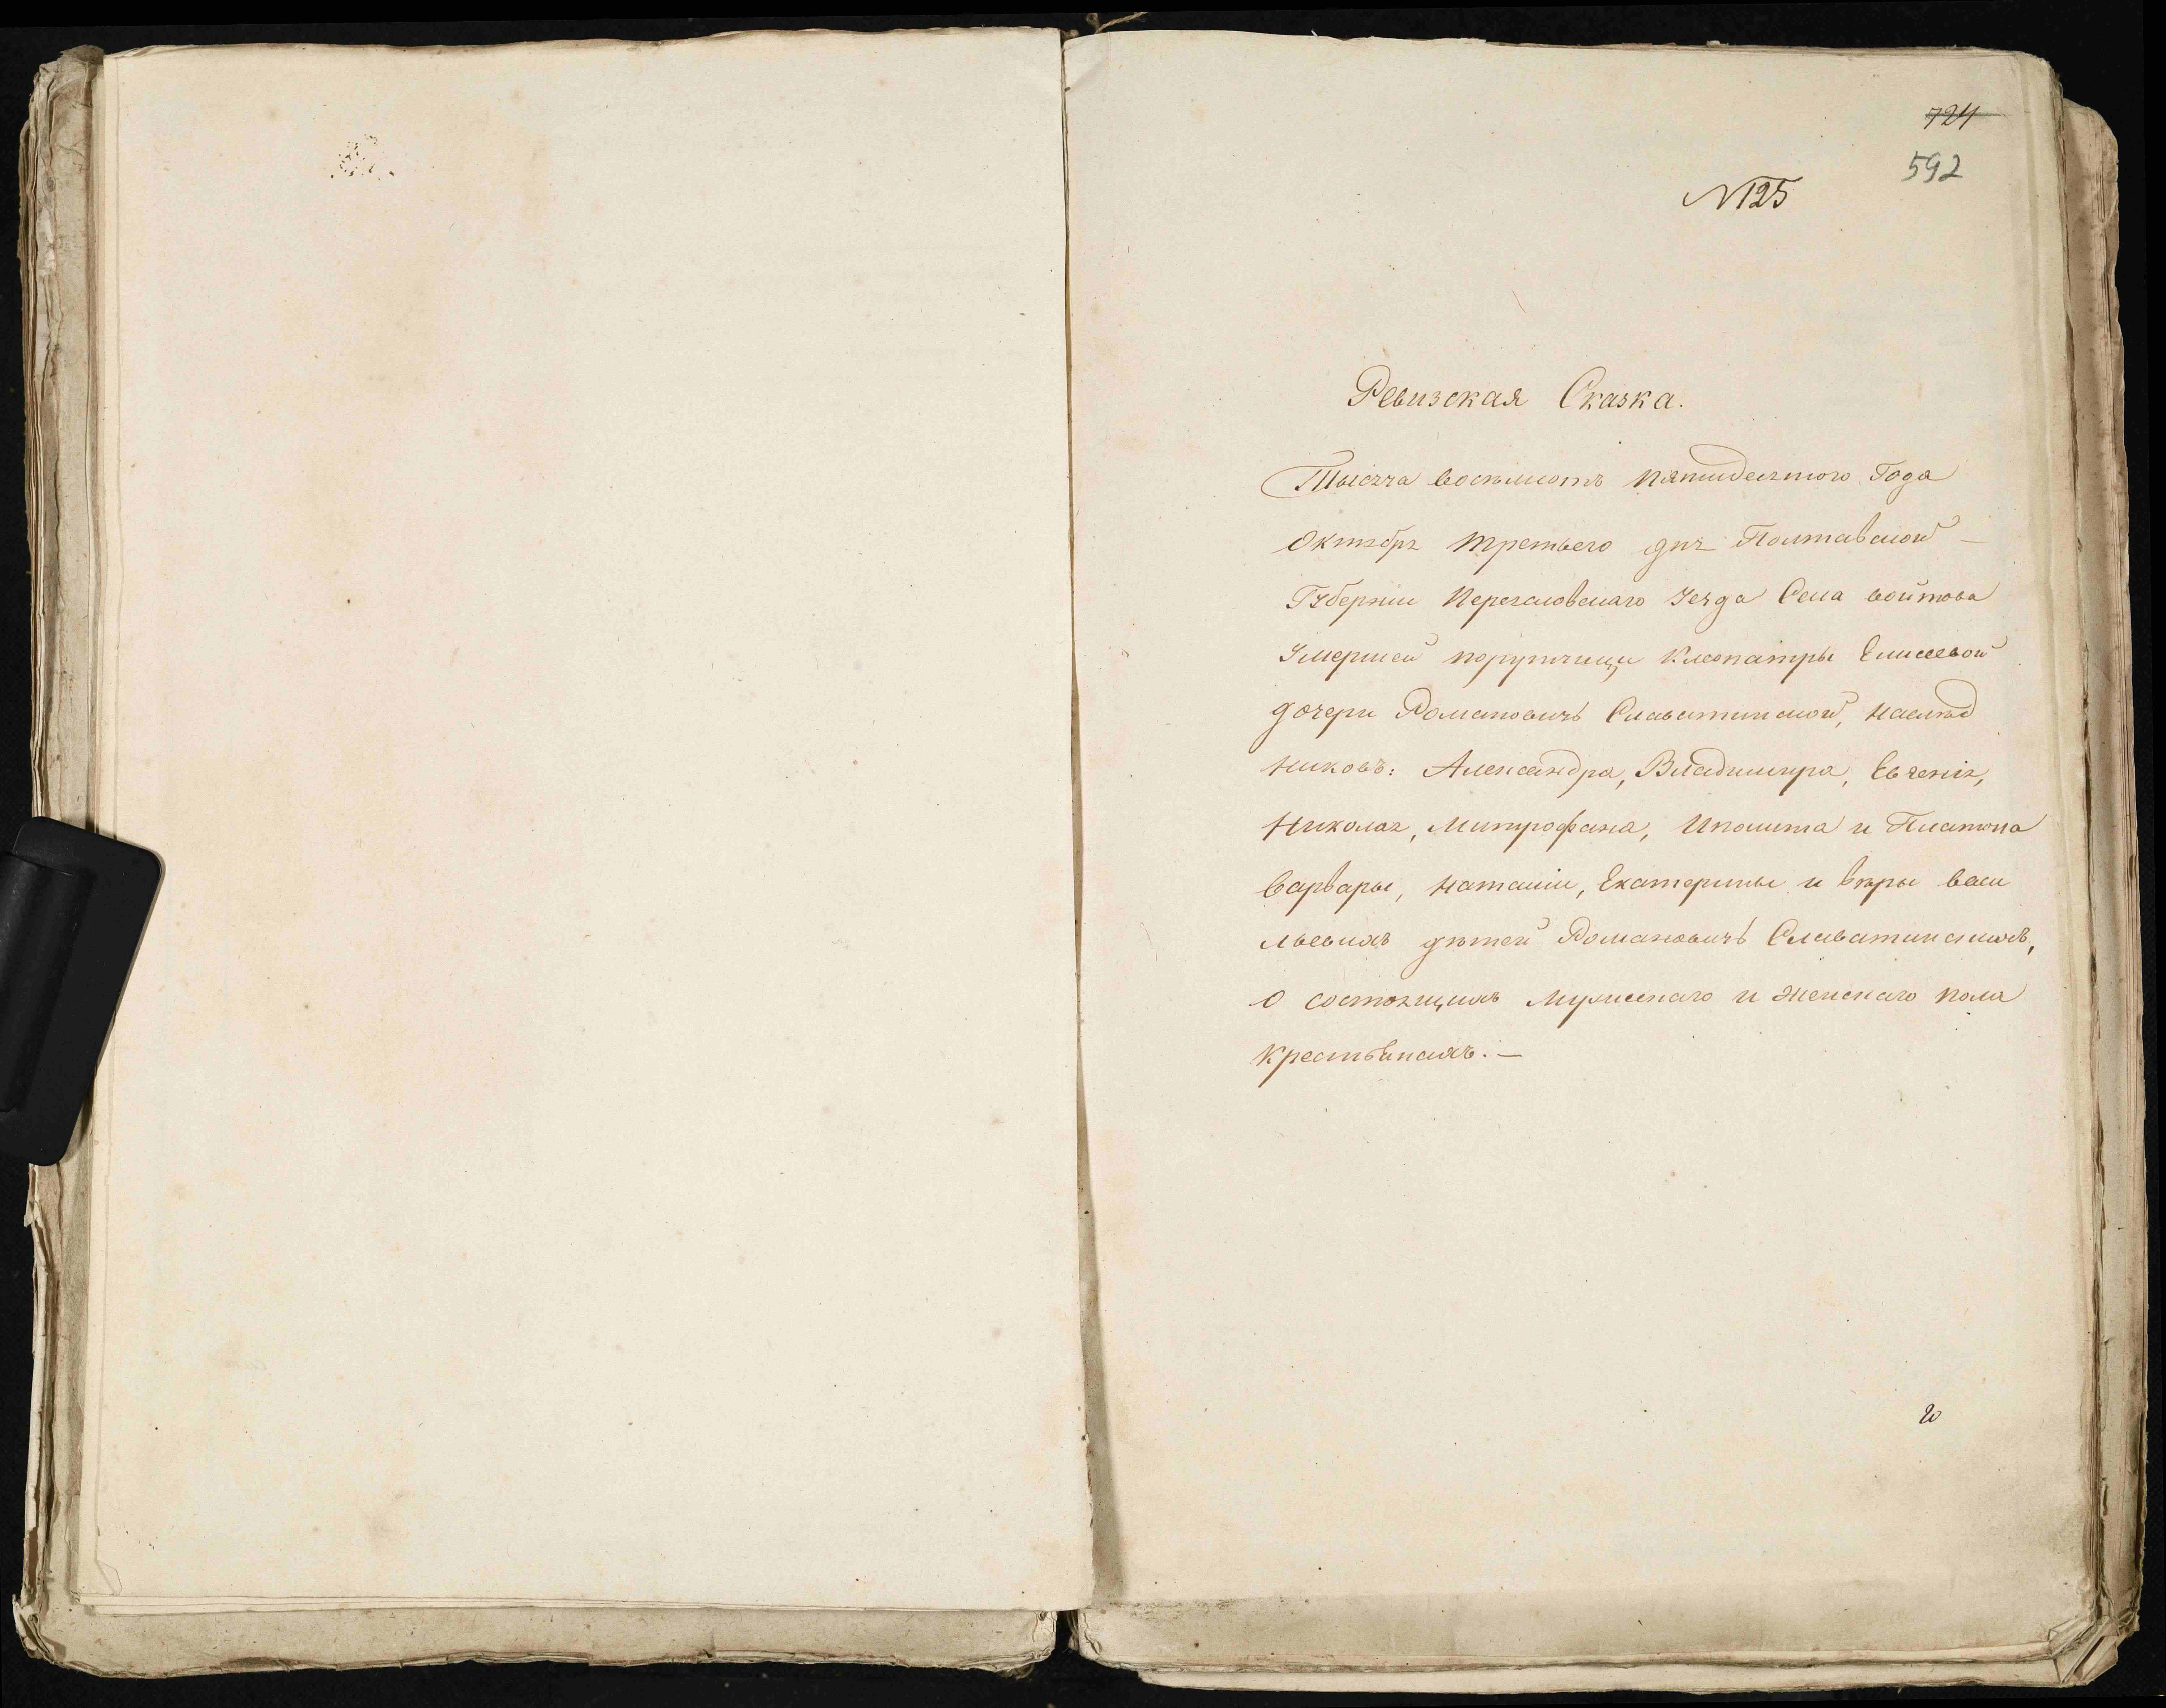 724
592
N125
Ревизская Сказка.
Тысяча восемьсотъ пятидесятого Года
Октября третьего дня Полтавской –
Губерніи Переяславскаго Уезда Села войтова
Умершей порутчицы Клеопатры Елисеевой
дочери Романовичь Славатинской, наслѣд
никовъ: Александра, Владимира, Евгенія,
Николая, Митрофана, Иполита и Платона
Варвары, Наталіи, Екатерины и вѣры васи
льевыхъ дѣтей Романовичь Славатинскихъ,
О состоящихъ мужескаго и женскаго пола
крестьянахъ. –